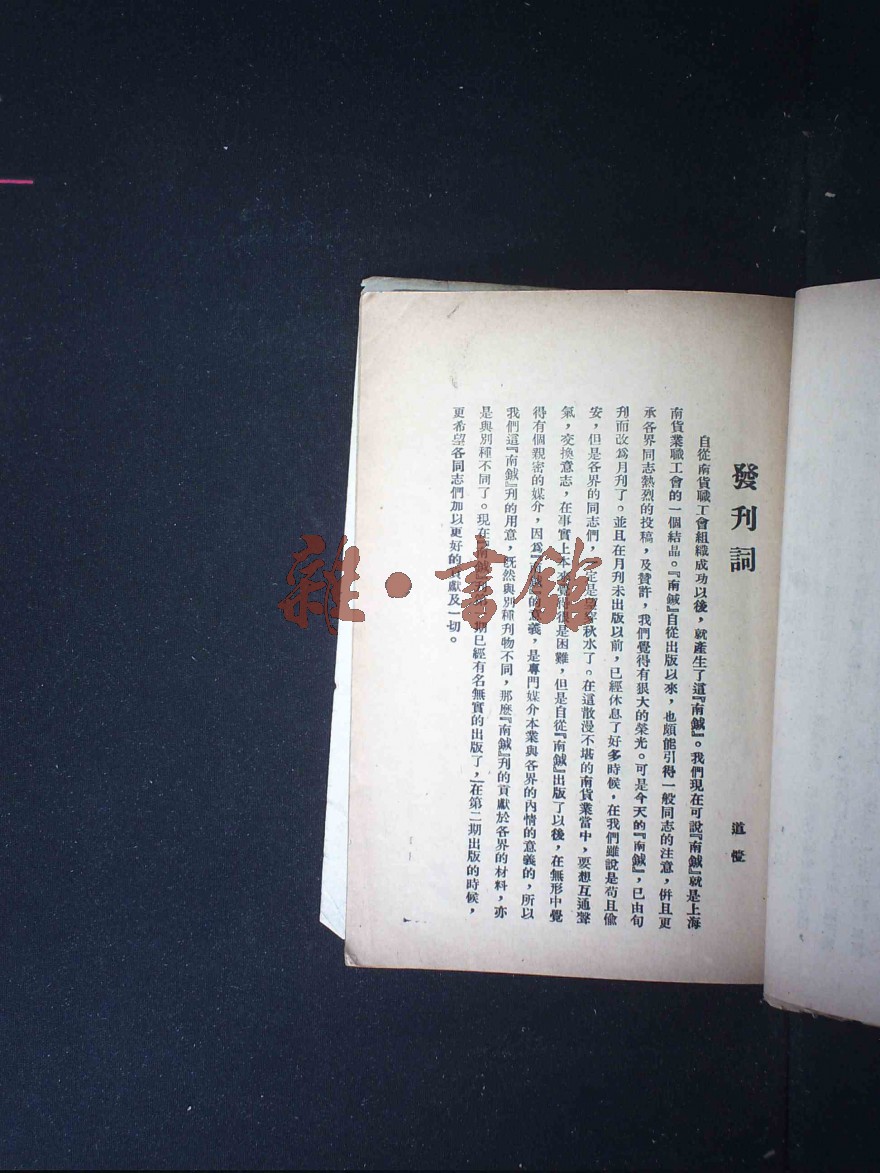 發刊詞
道
自從南貨職工會組織成功以後，就產生了這『南鍼』。我們現在可說『南鍼』就是上海
南貨業職工會的一個結晶。『南鍼』自從出版以來，也頗能引得一般同志的注意，併且更
承各界同志熱烈的投稿，及贊許，我們覺得有狠大的榮光。可是今天的『南鍼』，已由旬
刊而改爲月刊了。並且在月刊未出版以前，已經休息了好多時候，在我們雖說是苟且偸
安，但是各界的同志們，定是望穿秋水了。在這散漫不堪的南貨業當中，要想互通聲
氣，交換意志，在事實上本來覺得很是困難，但是自從『南鍼』出版了以後，在無形中覺
得有個親密的媒介，因爲『南鍼』的意義，是專門媒介本業與各界的內情的意義的，所以
我們這『南鍼』刊的用意，旣然與別種刊物不同，那麽『南鍼』刊的貢獻於各界的材料，亦
是與別種不同了。現在『南鍼』刊第一期已經有名無實的出版了，在第二期出版的時候，
更希望各同志們加以更好的貢獻及一切。
雜·書館